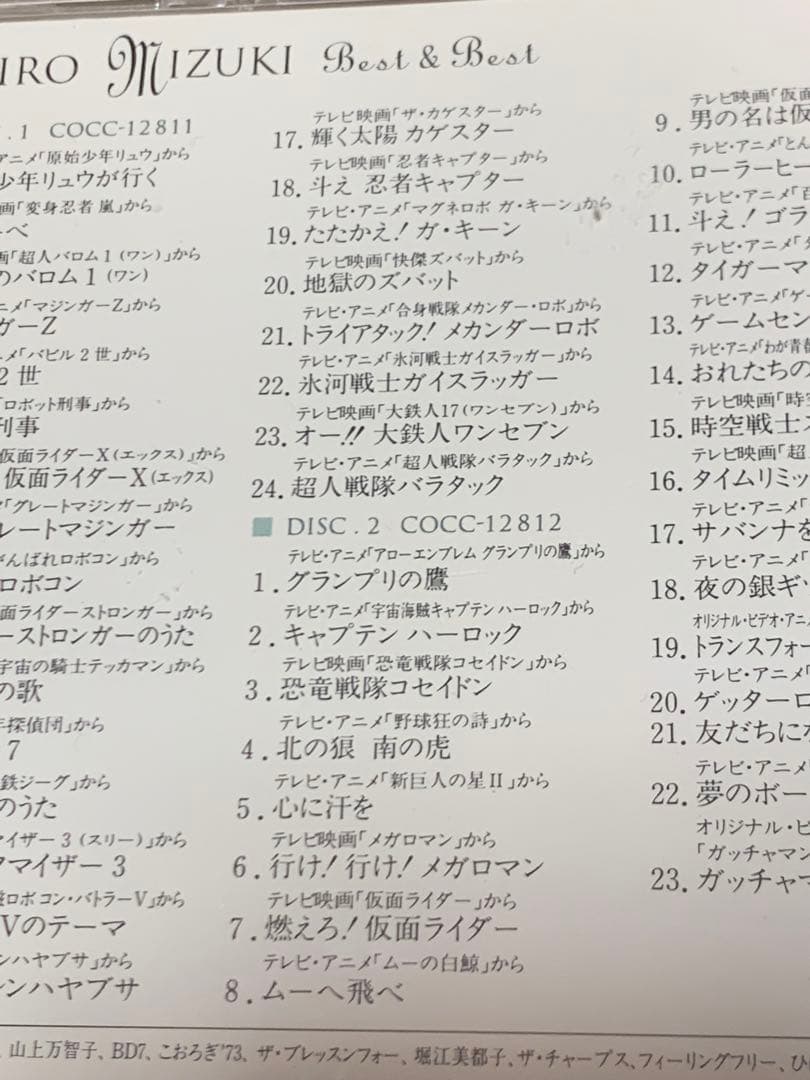 IRO MIZUKI Best & Best
.1 COCC-12811
アニメ「原始少年リュウ」から
少年リュウが行く
画「変身忍者 嵐」から
べ
画「超人バロム1(ワン)」から
のバロム1(ワン)
ニメ「マジンガーZ」から
ガーZ
メ「バビル2世」から
2世
「ロボット刑事」から
刑事
仮面ライダーX(エックス)」から
仮面ライダーX(エックス)
「グレートマジンガー」から
レートマジンガー
がんばれロボコン」から
ロボコン
面ライダーストロンガー」から
ーストロンガーのうた
宇宙の騎士テッカマン」から
の歌
年探偵団」から
7
鉄ジーグ」から
のうた
マイザー3(スリー)」から
クマイザー3
ロボコン・バトラーV」から
Vのテーマ
ンハヤブサ」から
ンハヤブサ
テレビ映画「ザ・カゲスター」から
17.輝く太陽 カゲスター
テレビ映画「忍者キャプター」から
18.斗え 忍者キャプター
テレビ・アニメ「マグネロボ ガ・キーン」から
19.たたかえ!ガ・キーン
テレビ映画「快傑ズバット」から
20.地獄のズバット
テレビ・アニメ「合身戦隊メカンダー・ロボ」から
21.トライアタック!メカンダーロボ
テレビ・アニメ「氷河戦士ガイスラッガー」から
22.氷河戦士ガイスラッガー
テレビ映画「大鉄人17(ワンセブン)」から
23.オー!!大鉄人ワンセブン
テレビ・アニメ「超人戦隊バラタック」から
24.超人戦隊バラタック
DISC.2 COCC-12812
テレビ・アニメ「アローエンブレム グランプリの鷹」から
1.グランプリの鷹
テレビ・アニメ「宇宙海賊キャプテン ハーロック」から
2.キャプテン ハーロック
テレビ映画「恐竜戦隊コセイドン」から
3.恐竜戦隊コセイドン
テレビ・アニメ「野球狂の詩」から
4.北の狼 南の虎
テレビ・アニメ「新巨人の星II」から
5.心に汗を
テレビ映画「メガロマン」から
6.行け!行け!メガロマン
テレビ映画「仮面ライダー」から
7.燃えろ!仮面ライダー
テレビ・アニメ「ムーの白鯨」から
8.ムーへ飛べ
テレビ映画「仮面
9.男の名は仮
テレビ・アニメ「とん
10.ローラーヒー
テレビ・アニメ「百
11.斗え!ゴラ
テレビ・アニメ「
12.タイガーマ
テレビ・アニメ「ゲー
13.ゲームセン
テレビ・アニメ「わが青春
14.おれたちの
テレビ映画「時空
15.時空戦士ス
テレビ映画「超
16.タイムリミッ
テレビ・アニメ「
17.サバンナを
テレビ・アニメ「
18.夜の銀ギ
オリジナル・ビデオ・アニメ
19.トランスフォー
テレビ・アニメ「
20.ゲッターロ
21.友だちにな
テレビ・アニメ「
22.夢のボー
オリジナル・ビ
「ガッチャマン
23.ガッチャマ
、山上万智子、BD7、こおろぎ'73、ザ・ブレッスンフォー、堀江美都子、ザ・チャープス、フィーリングフリー、ひ